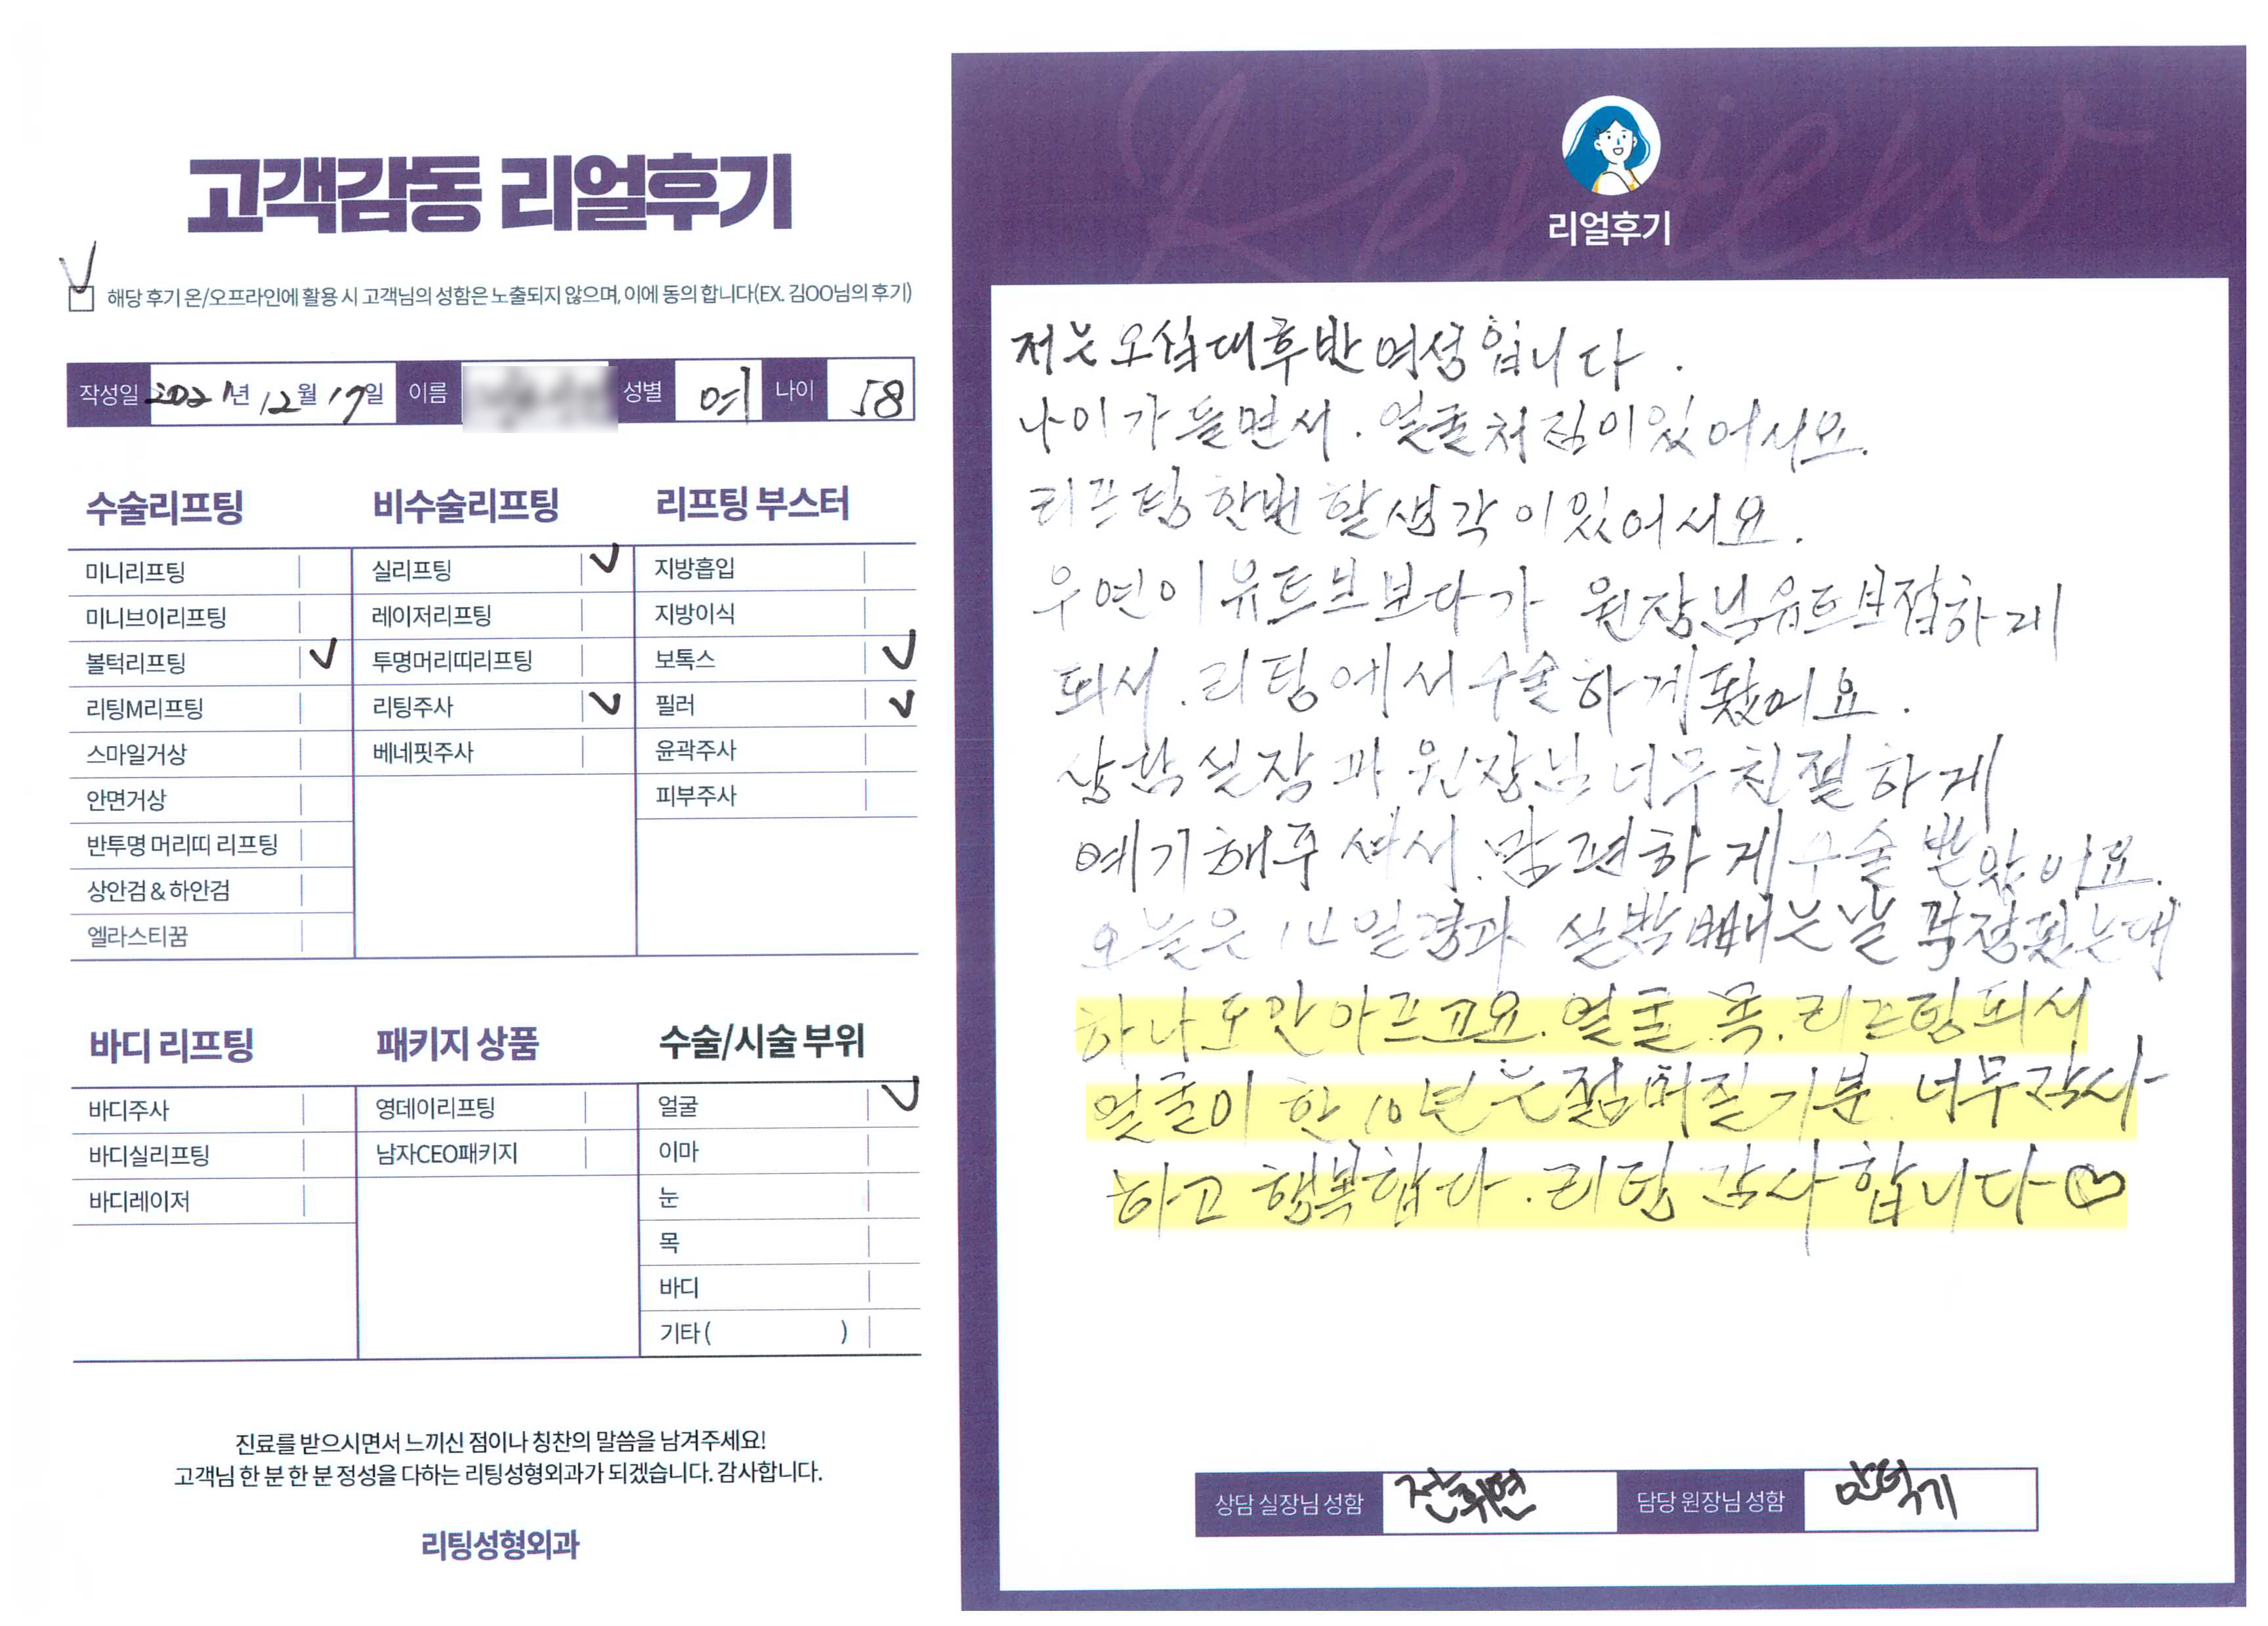 고객감동 리얼후기
해당 후기 온/오프라인에 활용 시 고객님의 성함은 노출되지 않으며, 이에 동의 합니다(EX. 김OO님의 후기)
작성일 2021년 12월 17일 이름 성별 여 나이 58
수술리프팅
미니리프팅
미니브이리프팅
볼턱리프팅
리팅M리프팅
스마일거상
안면거상
반투명 머리띠 리프팅
상안검&하안검
엘라스티꿈
비수술리프팅
실리프팅
레이저리프팅
투명머리띠리프팅
리팅주사
베네핏주사
리프팅 부스터
지방흡입
지방이식
보톡스
필러
윤곽주사
피부주사
바디 리프팅
바디주사
바디실리프팅
바디레이저
패키지 상품
영데이리프팅
남자CEO패키지
수술/시술 부위
얼굴
이마
눈
목
바디
기타 ( )
진료를 받으시면서 느끼신 점이나 칭찬의 말씀을 남겨주세요!
고객님 한 분 한 분 정성을 다하는 리팅성형외과가 되겠습니다. 감사합니다.
리팅성형외과
Review
리얼후기
저는 오십대후반 여성입니다.
나이가 들면서. 얼굴처짐이있어서요.
리프팅 한번 할생각이있어서요.
우연이 유트브보다가 원장님유트브접하게
되서. 리팅에서수술하게됐어요.
상담실장과 원장님 너무친절하게
예기해주셔서. 맘편하게수술받았아요.
오늘은 14일경과 실밥빼는날 걱정됐는데
하나도안아프고요. 얼굴.목.리프팅되서
얼굴이 한10년는젊머진기분. 너무감사
하고 행복합다. 리팅 감사합니다♡
상담 실장님 성함 전휘연 담당 원장님 성함